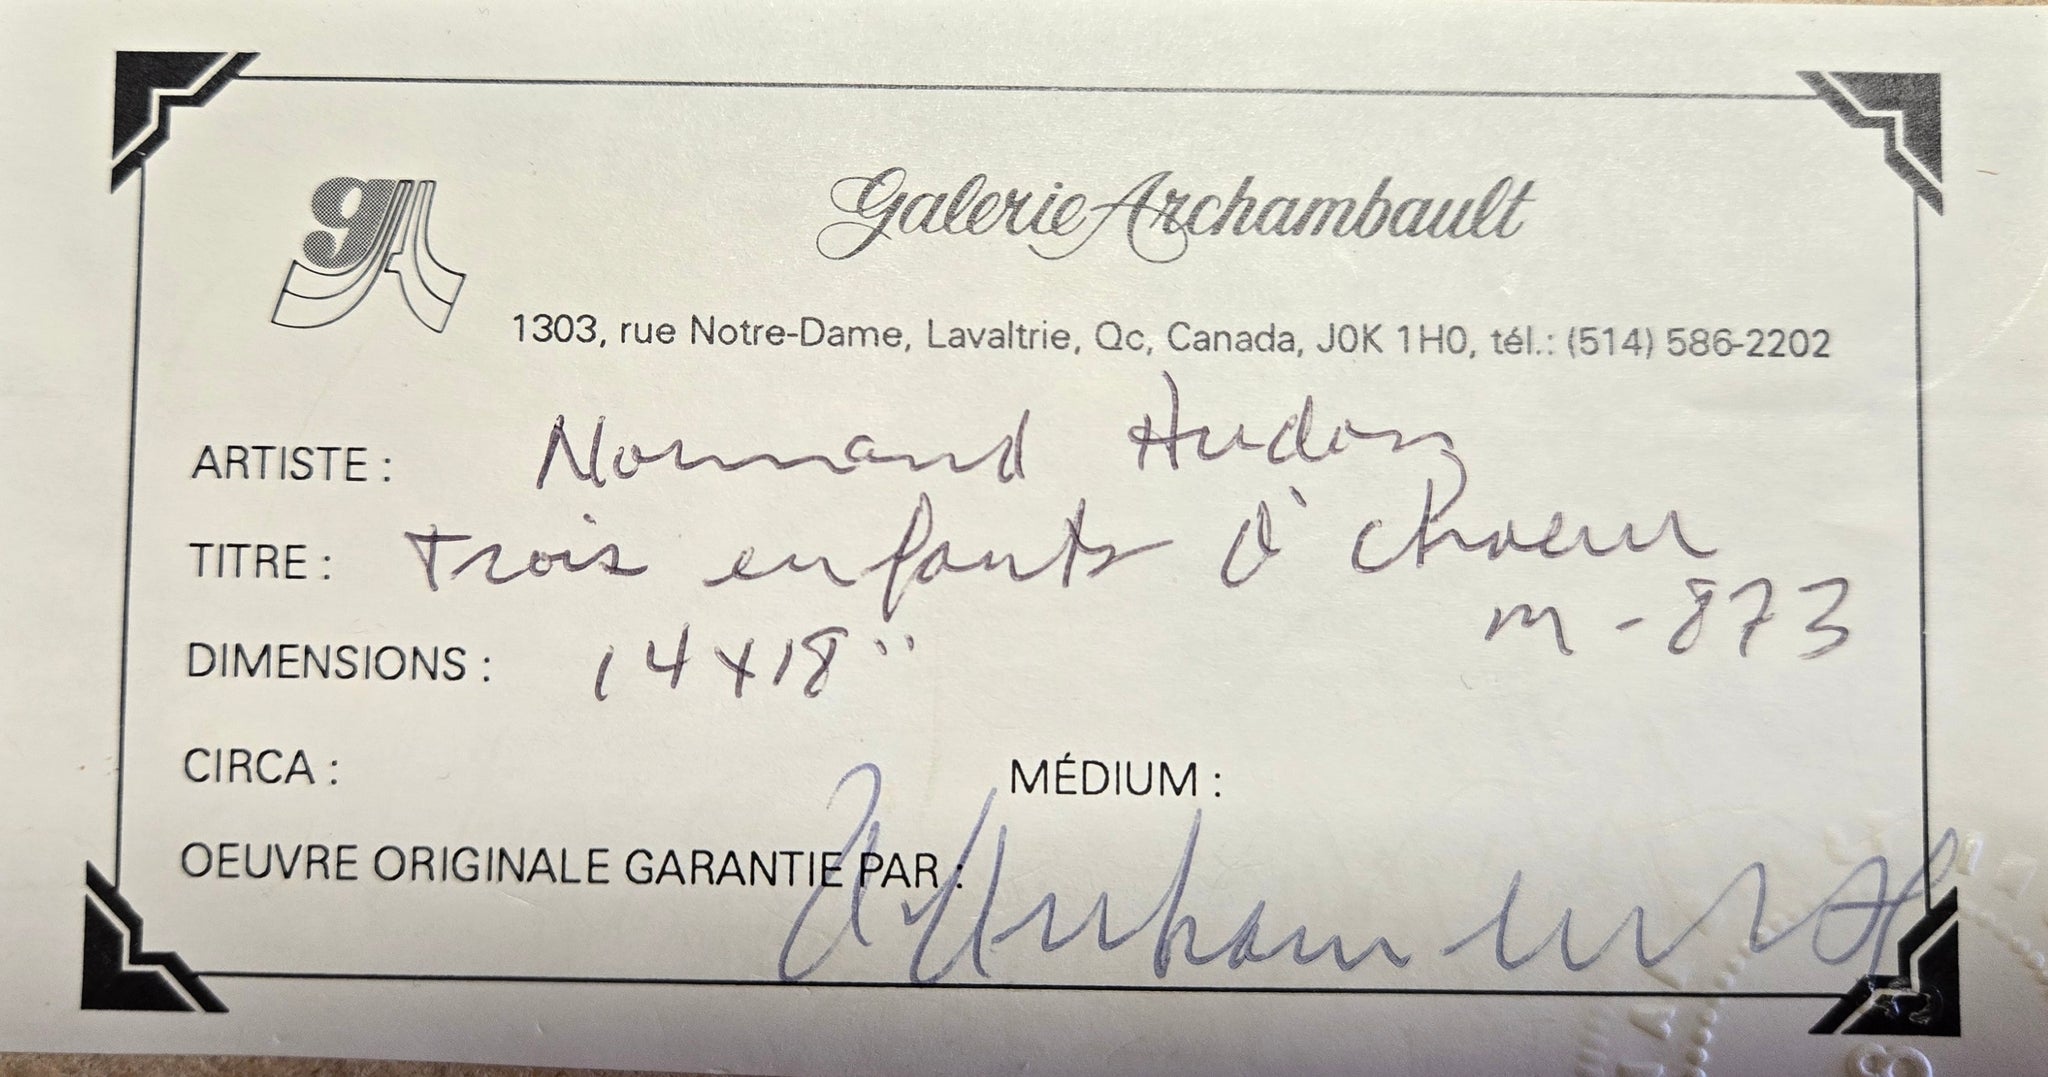 gA
Galerie Archambault
1303, rue Notre-Dame, Lavaltrie, Qc, Canada, J0K 1H0, tél.: (514) 586-2202
ARTISTE : Normand Hudon
TITRE : Trois enfants à choeur
m-873
DIMENSIONS : 14 x 18"
CIRCA : MÉDIUM :
OEUVRE ORIGINALE GARANTIE PAR :